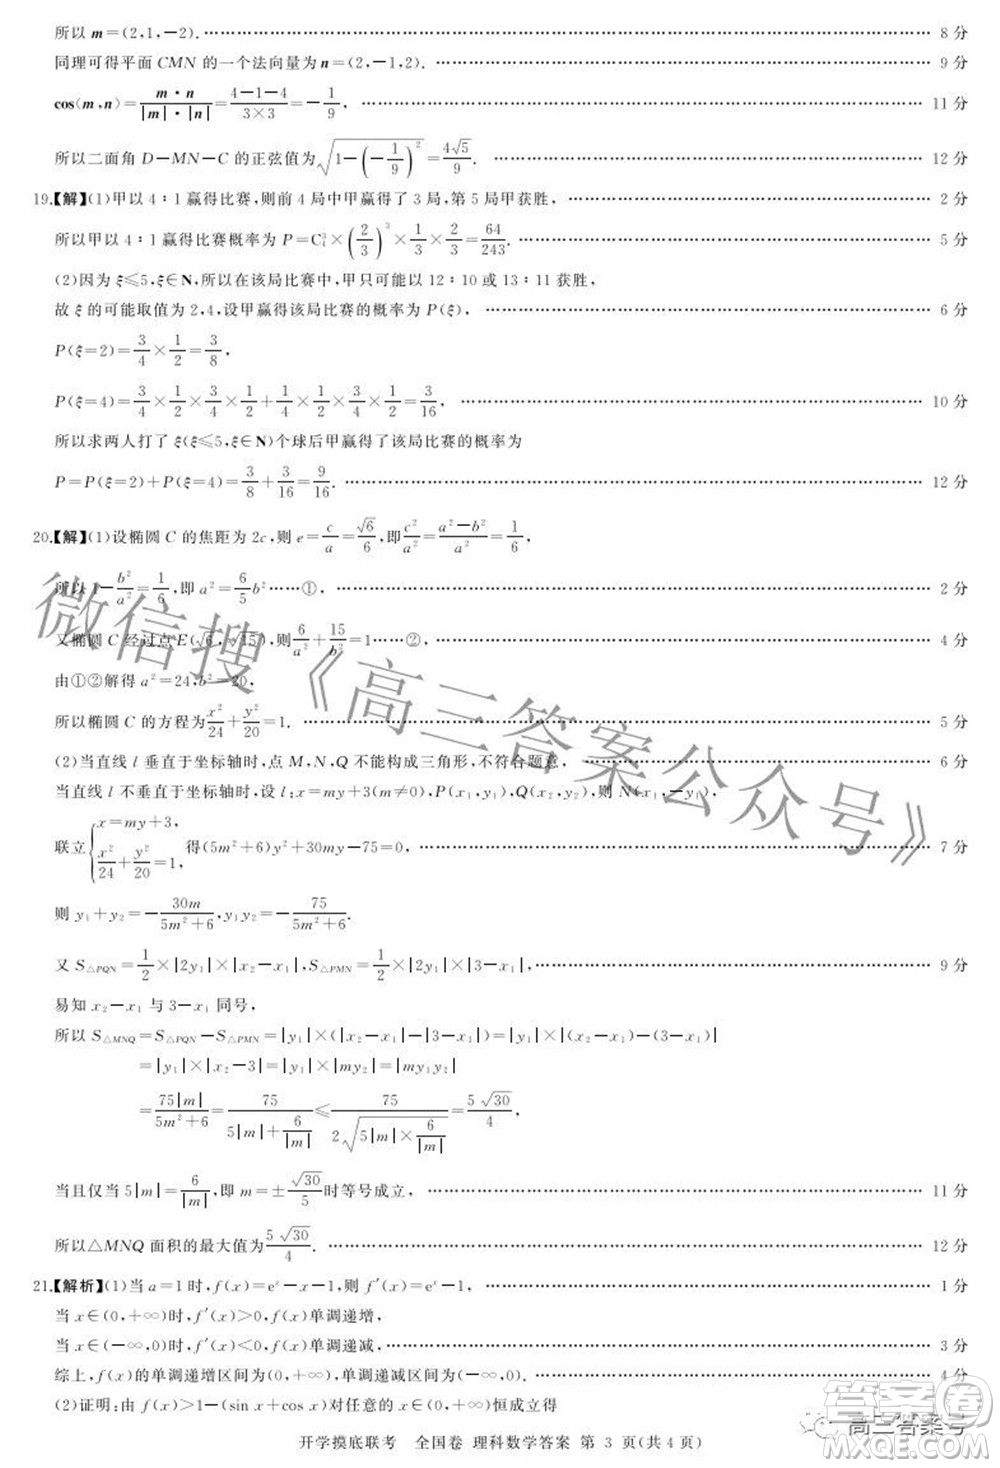 所以 m=(2,1,-2). …… 8 分
同理可得平面 CMN 的一个法向量为 n=(2,-1,2). …… 9 分
cos⟨m,n⟩=m·n/|m|·|n|=(4-1-4)/(3×3)=-1/9, …… 11 分
所以二面角 D-MN-C 的正弦值为√(1-(-1/9)²)=4√5/9. …… 12 分
19.【解】(1)甲以 4∶1 赢得比赛,则前 4 局中甲赢得了 3 局,第 5 局甲获胜, …… 2 分
所以甲以 4∶1 赢得比赛概率为 P=C₄³×(2/3)³×1/3×2/3=64/243. …… 5 分
(2)因为 ξ≤5,ξ∈N,所以在该局比赛中,甲只可能以 12∶10 或 13∶11 获胜,
故 ξ 的可能取值为 2,4,设甲赢得该局比赛的概率为 P(ξ), …… 6 分
P(ξ=2)=3/4×1/2=3/8,
P(ξ=4)=3/4×1/2×3/4×1/2+1/4×1/2×3/4×1/2=3/16, …… 10 分
所以求两人打了 ξ(ξ≤5,ξ∈N)个球后甲赢得了该局比赛的概率为
P=P(ξ=2)+P(ξ=4)=3/8+3/16=9/16. …… 12 分
20.【解】(1)设椭圆 C 的焦距为 2c,则 e=c/a=√6/6,即c²/a²=(a²-b²)/a²=1/6,
所以 1-b²/a²=1/6,即 a²=6/5b²……①, …… 2 分
又椭圆 C 经过点 E(√6,√15),则6/a²+15/b²=1……②, …… 4 分
由①②解得 a²=24,b²=20,
所以椭圆 C 的方程为x²/24+y²/20=1. …… 5 分
(2)当直线 l 垂直于坐标轴时,点 M,N,Q 不能构成三角形,不符合题意, …… 6 分
当直线 l 不垂直于坐标轴时,设 l:x=my+3(m≠0),P(x₁,y₁),Q(x₂,y₂),则 N(x₁,-y₁),
联立{x=my+3, x²/24+y²/20=1, 得(5m²+6)y²+30my-75=0, …… 7 分
则 y₁+y₂=-30m/(5m²+6),y₁y₂=-75/(5m²+6).
又 S△PQN=1/2×|2y₁|×|x₂-x₁|,S△PMN=1/2×|2y₁|×|3-x₁|, …… 9 分
易知 x₂-x₁ 与 3-x₁ 同号,
所以 S△MNQ=S△PQN-S△PMN=|y₁|×(|x₂-x₁|-|3-x₁|)=|y₁|×|(x₂-x₁)-(3-x₁)|
=|y₁|×|x₂-3|=|y₁|×|my₂|=|my₁y₂|
=75|m|/(5m²+6)=75/(5|m|+6/|m|)≤75/(2√(5|m|×6/|m|))=5√30/4,
当且仅当 5|m|=6/|m|,即 m=±√30/5时等号成立, …… 11 分
所以△MNQ 面积的最大值为5√30/4. …… 12 分
21.【解析】(1)当 a=1 时,f(x)=eˣ-x-1,则 f′(x)=eˣ-1, …… 1 分
当 x∈(0,+∞)时,f′(x)>0,f(x)单调递增,
当 x∈(-∞,0)时,f′(x)<0,f(x)单调递减, …… 3 分
综上,f(x)的单调递增区间为(0,+∞),单调递减区间为(-∞,0). …… 4 分
(2)证明:由 f(x)>1-(sin x+cos x)对任意的 x∈(0,+∞)恒成立得
开学摸底联考 全国卷 理科数学答案 第 3 页(共 4 页)
微信搜《高三答案公众号》
高三答案号
答案圈
MXQE.COM